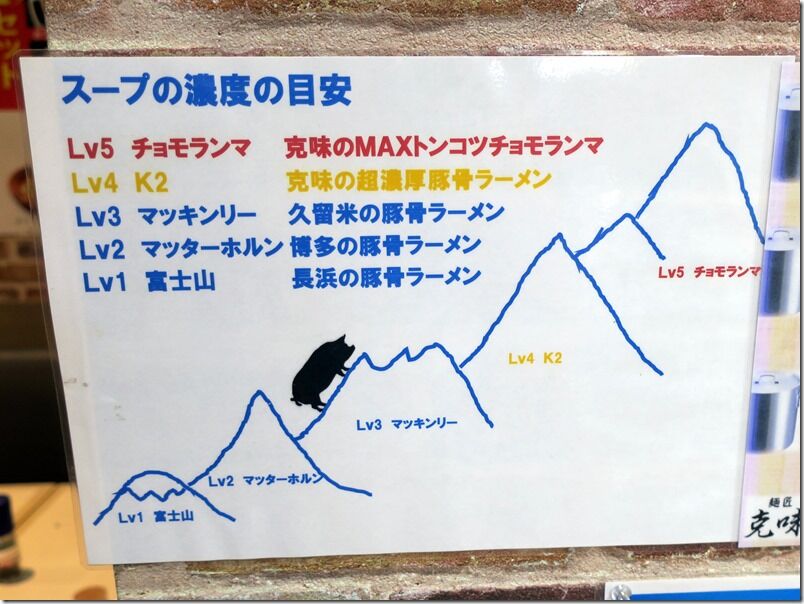 セット
スープの濃度の目安
Lv5 チョモランマ 克味のMAXトンコツチョモランマ
Lv4 K2 克味の超濃厚豚骨ラーメン
Lv3 マッキンリー 久留米の豚骨ラーメン
Lv2 マッターホルン 博多の豚骨ラーメン
Lv1 富士山 長浜の豚骨ラーメン
Lv5 チョモランマ
Lv4 K2
Lv3 マッキンリー
Lv2 マッターホルン
Lv1 富士山
麺匠
克味